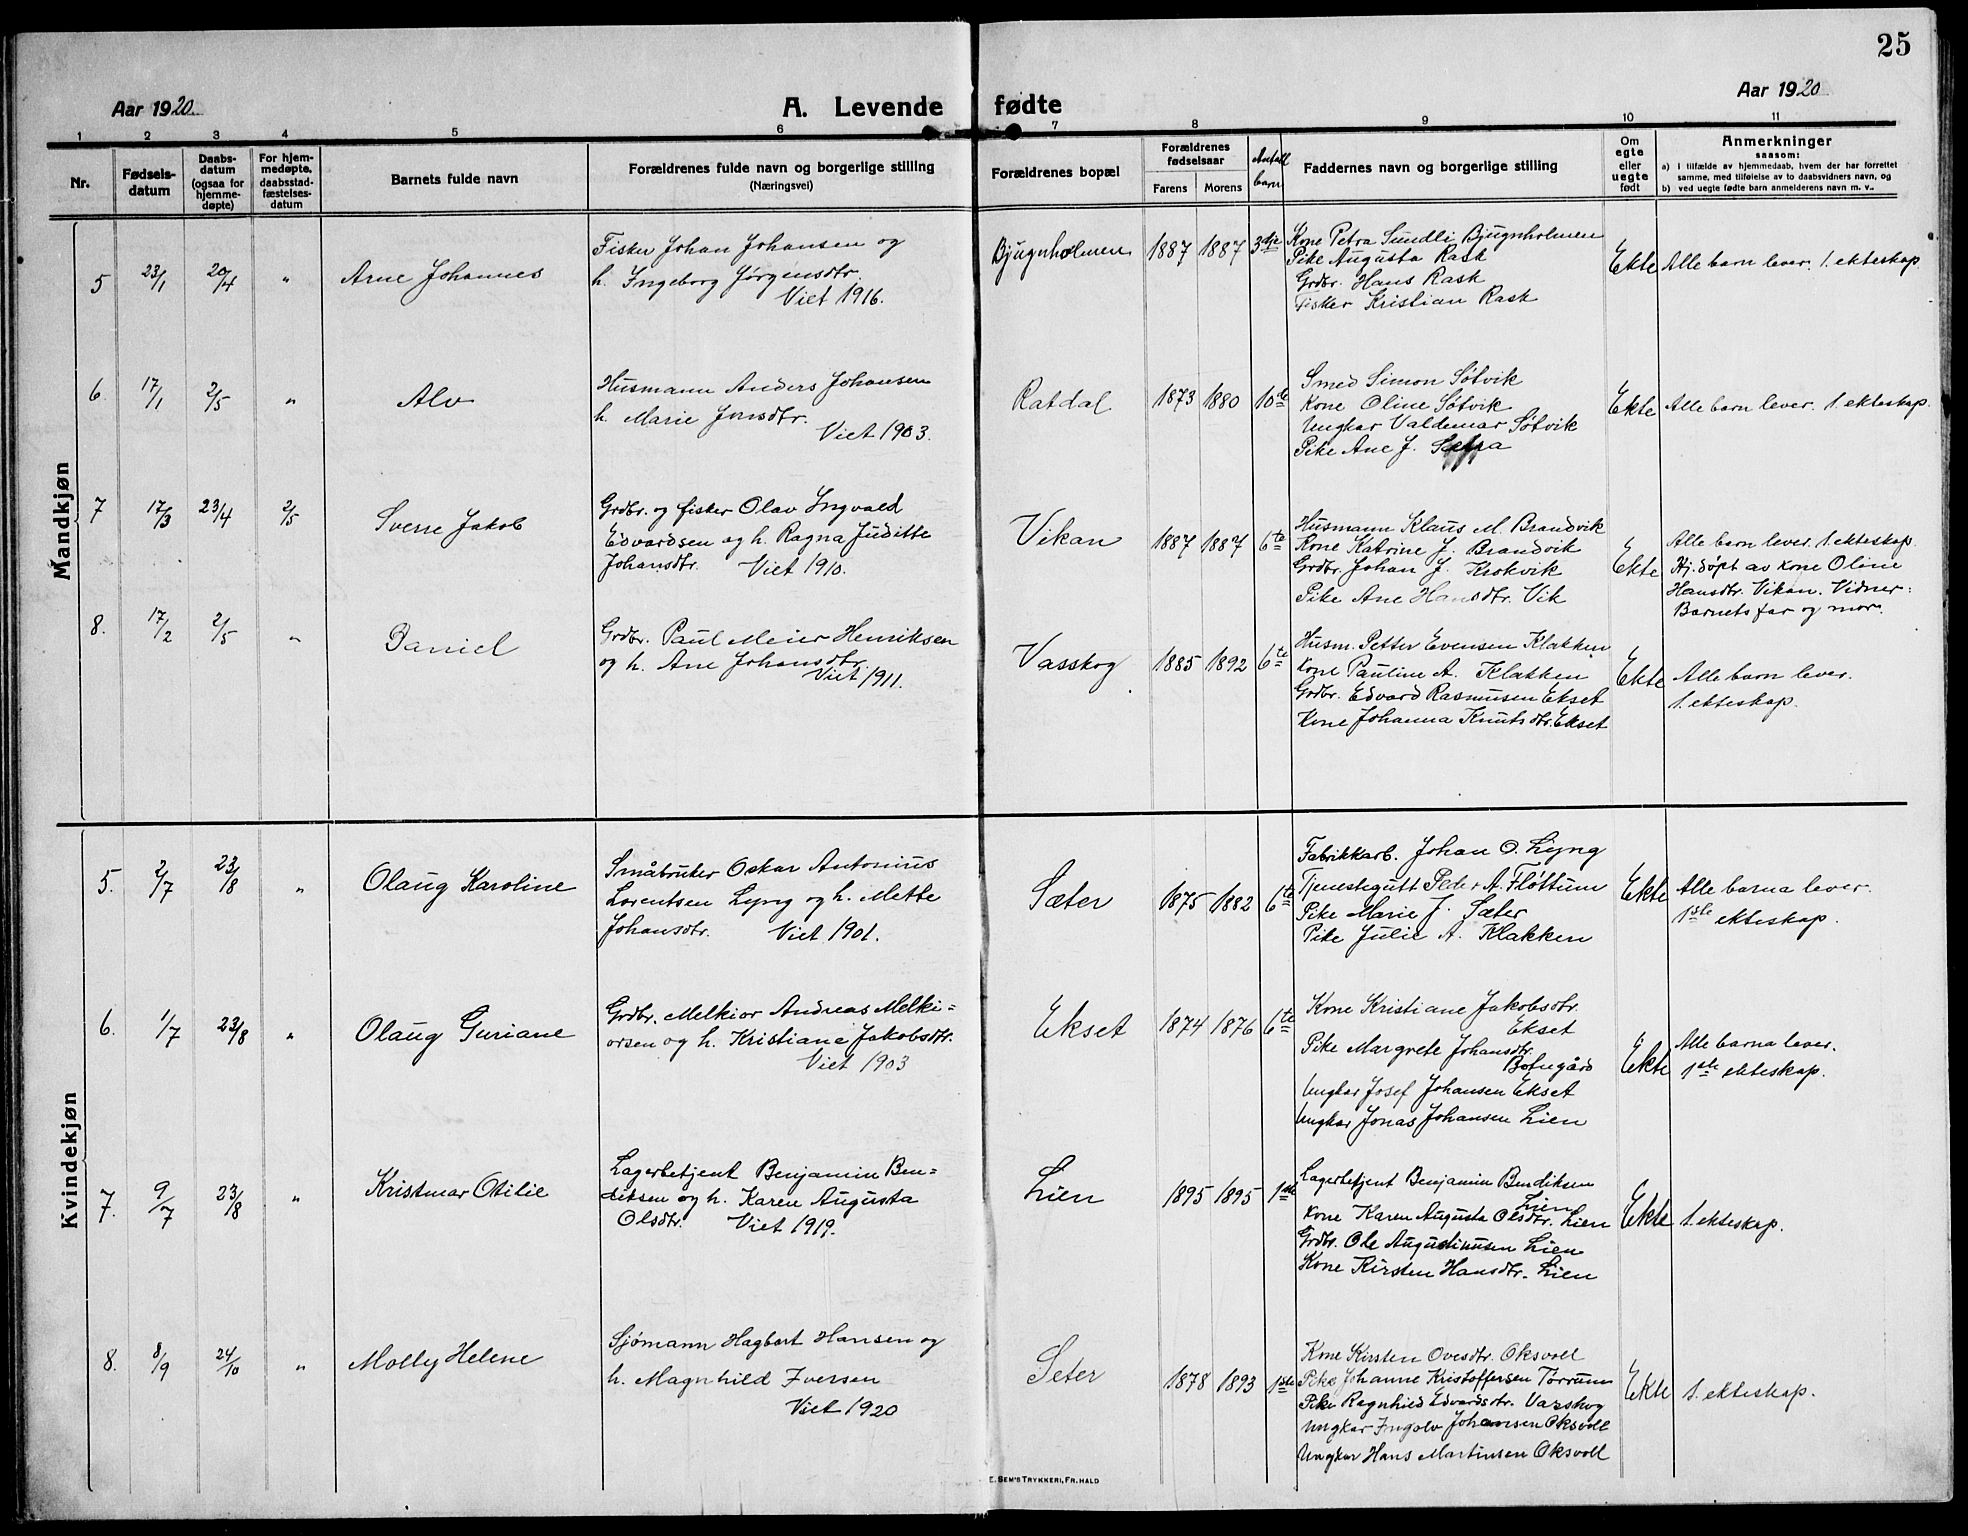 25
Aar 1920
A. Levende fødte
Aar 1920
1 2 3 4 5 6 7 8 9 10 11
Nr.
Fødselsdatum
Daabsdatum (ogsaa for hjemmedøpte)
For hjemmedøpte. daabsstadfæstelsesdatum
Barnets fulde navn
Forældrenes fulde navn og borgerlige stilling
(Næringsvei)
Forældrenes bopæl
Forældrenes fødselsaar
Farens Morens
Antall barn
Faddernes navn og borgerlige stilling
Om egte eller uegte født
Anmerkninger
saasom:
a) i tilfælde av hjemmedaab, hvem der har forrettet
samme, med tilføielse av to daabsvidners navn, og
b) ved uegte fødte barn anmelderens navn m. v..
Mandkjøn
5 23/1 20/4 " Arne Johannes
Fisker Johan Johansen og
h. Ingeborg Jørgensdtr.
Viet 1916.
Bjugnholmen 1887 1887 3dje
Kone Petra Sundli Bjugnholmen
Pike Augusta Rask
Grdbr. Hans Rask
Fisker Kristian Rask
Ekte Alle barn lever. 1. ekteskap.
6 17/1 2/5 " Alv
Husmann Anders Johansen
h. Marie Jonsdtr.
Viet 1903.
Ratdal 1873 1880 10de
Smed Simon Søtvik
Kone Oline Søtvik
Ungkar Valdemar Søtvik
Pike Ane J.
Ekte Alle barn lever. 1. ekteskap.
7 17/3 23/4 2/5 Sverre Jakob
Grdbr. og fisker Olav Ingvald
Edvardsen og h. Ragna Juditte
Johansdtr. Viet 1910.
Vikan 1887 1887 6te
Husmann Klaus M. Brandvik
Kone Katrine J. Brandvik
Grdbr. Johan J. Krokvik
Pike Ane Hansdtr. Vik
Ekte
Alle barn lever. 1. ekteskap.
Hj. døpt av kone Oline
Hansdtr. Vikan. Vidner:
Barnets far og mor.
8. 17/2 2/5 " Daniel
Grdbr. Paul Meier Henriksen
og h. Ane Johansdtr.
Viet 1911.
Vasskog 1885 1892 6te
Husm. Petter Evensen Klakken
Kone Pauline A. Klakken
Grdbr. Edvard Rasmusen Ekset
Kone Johanna Knutsdtr. Ekset
Ekte
Alle barn lever.
1. ekteskap.
Kvindekjøn
5. 2/7 23/8 " Olaug Karoline
Småbruker Oskar Antonius
Lorentsen Lyng og h. Mette
Johansdtr. Viet 1901.
Sæter 1875 1882 6te
Fabrikkarb. Johan O. Lyng
Tjenestegutt Peder A. Fløttum
Pike Marie J. Sæter
Pike Julie A. Klakken
Ekte
Alle barna lever.
1ste ekteskap.
6. 1/7 23/8 " Olaug Guriane
Grdbr. Melkior Andreas Melki=
orsen og h. Kristiane Jakobsdtr.
Viet 1903
Ekset 1874 1876 6te
Kone Kristiane Jakobsdtr.
Ekset
Pike Margrete Johansdtr.
Botngård
Ungkar Josef Johansen Ekset
Ungkar Jonas Johansen Lien
Ekte
Alle barna lever.
1ste ekteskap.
7. 9/7 23/8 " Kristmar Otilie
Lagerbetjent Benjamin Ben=
diksen og h. Karen Augusta
Olsdtr. Viet 1919.
Lien 1895 1895 1ste
Lagerbetjent Benjamin Bendiksen
Lien
Kone Karen Augusta Olsdtr. Lien
Grdbr. Ole Augustinusen Lien
Kone Kirsten Hansdtr. Lien
Ekte 1. ekteskap.
8. 8/9 24/10 " Molly Helene
Sjømann Hagbart Hansen og
h. Magnhild Iversen
Viet 1920
Seter 1878 1893 1ste
Kone Kirsten Ovesdtr. Oksvoll
Pike Johanne Kristoffersen Tørrum
Pike Ragnhild Edvardsdtr. Varskog
Ungkar Ingolv Johansen Oksvoll
Ungkar Hans Martinsen Oksvoll
Ekte 1. ekteskap.
E. SEM'S TRYKKERI, FR.HALD